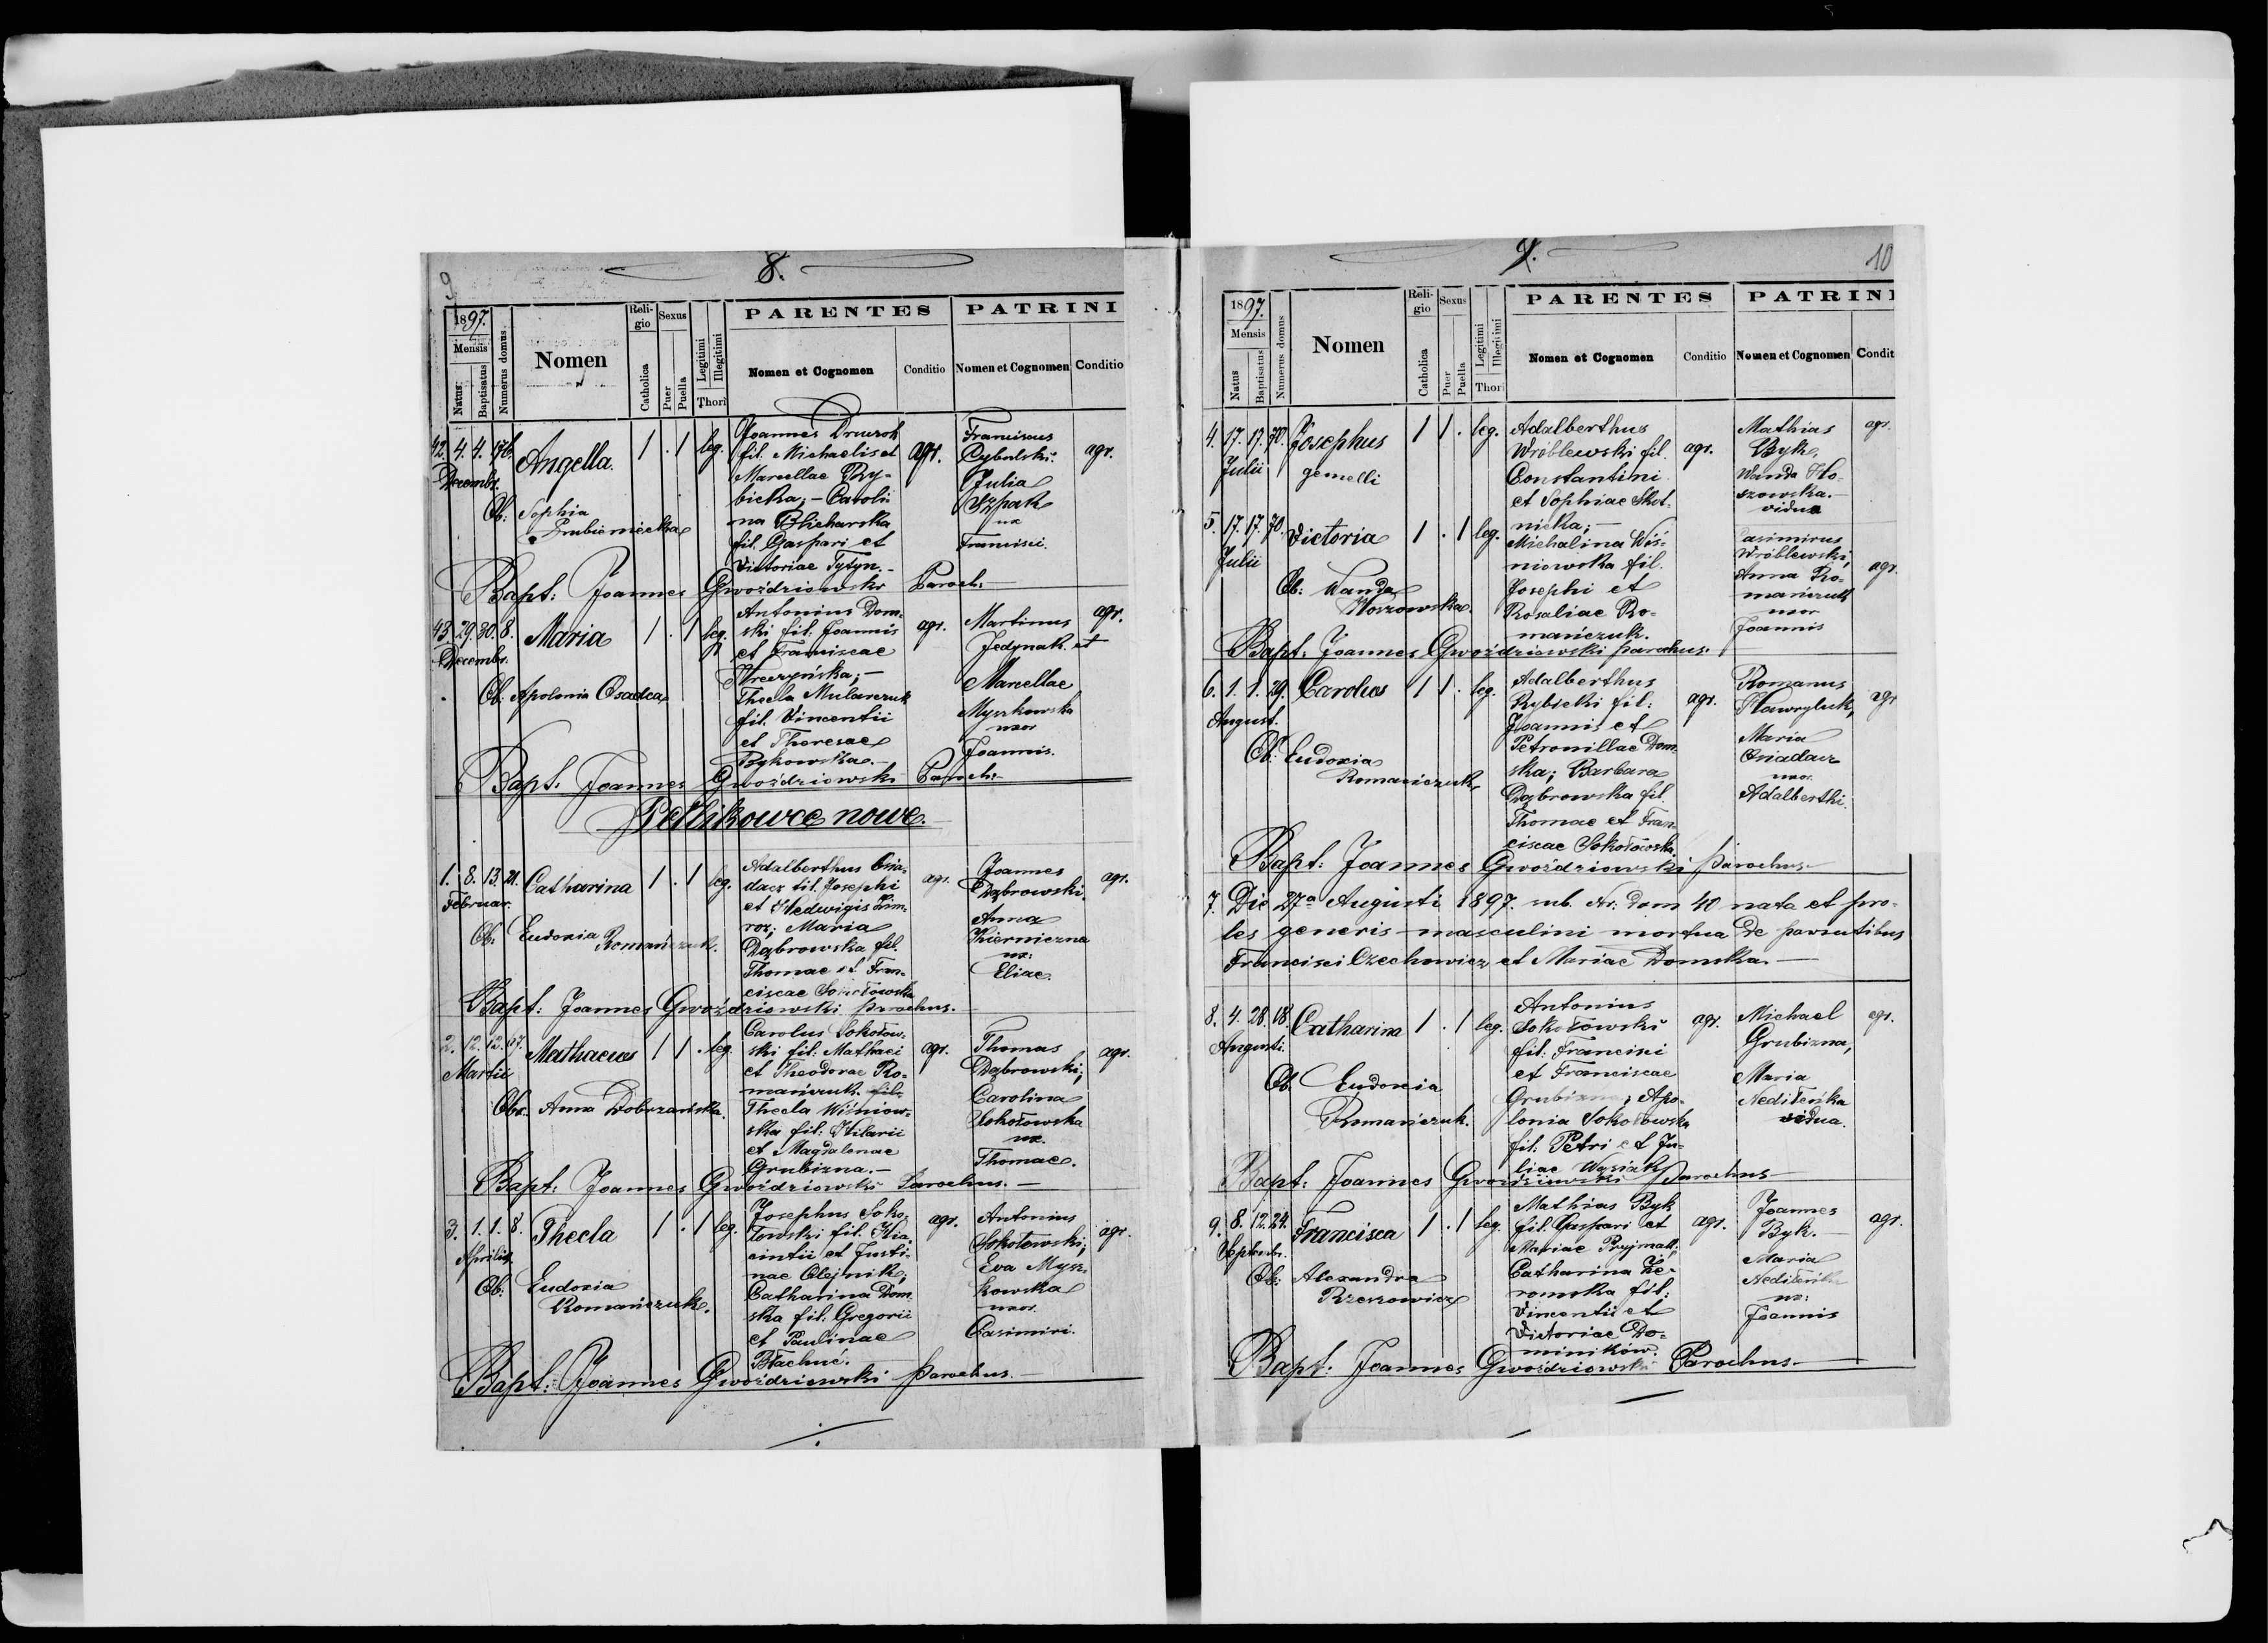 9
8.
1897.
Mensis
Natus
Baptisatus
Numerus domus
Nomen
Religio
Catholica
Sexus
Puer
Puella
Legitimi
Illegitimi
Thori
PARENTES
Nomen et Cognomen
Conditio
PATRINI
Nomen et Cognomen
Conditio
42. 4. 4. 176. Angella. 1 . 1 leg.
Decembr.
Ob: Sophia
Joannes
fil. Michaelis et
Marcellae Ry-
bicka; – Caroli-
na Blicharska
fil. Gaspari et
Victoriae Tytyn. –
agr.
Franciscus
Cybulski.
Julia
Szpak
ux
Francisci.
agr.
Bapt: Joannes Gwoździowski Paroch: –
43. 29. 30. 8. Maria 1 . 1 leg.
Decembr.
Ob: Apolonia Osadca
Antonius Dom-
ski fil. Joannis
et Franciscae
Thecla Mularczuk
fil. Vincentii
et Theresae
Bykowska. –
agr.
Martinus
Jedynak et
Marcellae
Myszkowska
uxor
Joannis.
agr.
Bapt: Joannes Gwoździowski Paroch: –
Petlikowce nowe.
1. 8. 13. 21. Catharina 1 . 1 leg.
Februar.
Ob: Eudoxia
Romańczuk.
Adalberthus Osia-
dacz fil. Josephi
et Hedwigis Zim-
roz; Maria
Dąbrowska fil.
Thomae et Fran-
ciscae Sokołowska
agr.
Joannes
Dąbrowski.
Anna
Kierniczna
ux:
Eliae.
agr.
Bapt: Joannes Gwoździowski parochus. –
2. 12. 12. 157. Mathaeus 1 1 . leg.
Martii
Obs. Anna Dobrzańska.
Carolus Sokołow-
ski fil: Mathaei
et Theodorae Ro-
mańczuk. fil:
Thecla Wiśniow-
ska fil: Hilarii
et Magdalenae
Grubizna. –
agr.
Thomas
Dąbrowski;
Carolina
Sokołowska
ux.
Thomae.
agr.
Bapt: Joannes Gwoździowski Parochus. –
3. 1. 1. 8. Thecla 1 . 1 leg.
Aprilis
Ob: Eudoxia
Romańczuk.
Josephus Soko-
łowski fil. Hia-
cintii et Justi-
nae Olejnik;
Catharina Dom-
ska fil: Gregorii
et Paulinae
Błachuć.
agr.
Antonius
Sokołowski;
Eva Mysz-
kowska
uxor
Casimiri.
agr.
Bapt: Joannes Gwoździowski parochus. –
9.
10
1897.
Mensis
Natus
Baptisatus
Numerus domus
Nomen
Religio
Catholica
Sexus
Puer
Puella
Legitimi
Illegitimi
Thori
PARENTES
Nomen et Cognomen
Conditio
PATRINI
Nomen et Cognomen
Condit
4. 17. 17. 70. Josephus 1 1 . leg.
Julii
gemelli
5. 17. 17. 70. Victoria 1 . 1 leg.
Julii
Ob: Wanda
Woszowska.
Adalberthus
Wróblewski fil.
Constantini
et Sophiae Skot-
nicka; –
Michalina Wiś-
niowska fil.
Josephi et
Rosaliae Ro-
mańczuk.
agr.
Mathias
Byk,
Wanda Wo-
szowska. –
vidua
agr.
Casimirus
Wróblewski,
Anna Ro-
mańczuk
uxor
Joannis
agr.
Bapt: Joannes Gwoździowski parochus.
6. 1. 1. 29. Carolus 1 1 . leg.
August.
Ob: Eudoxia
Romańczuk
Adalberthus
Rybicki fil:
Joannis et
Petronillae Dom-
ska; Barbara
Dąbrowska fil.
Thomae et Fran-
ciscae Sokołowska.
agr.
Romanus
Hawryluk,
Maria
Osiadacz
uxor.
Adalberthi.
agr
Bapt: Joannes Gwoździowski parochus. –
7. Die 27a Augusti 1897. sub. Nr: dom 40 nata et pro-
les generis masculini mortua de parentibus
Francisci Czechowicz et Mariae Domska. –
8. 4. 28. 18. Catharina 1 . 1 leg.
Augusti.
Ob. Eudoxia
Romańczuk.
Antonius
Sokołowski
fil: Francisci
et Franciscae
Grubizna; Apo-
lonia Sokołowska
fil: Petri et Ju-
liae Wasiak
agr.
Michael
Grubizna,
Maria
Nediłeńka
vidua.
agr.
Bapt: Joannes Gwoździowski Parochus –
9. 8. 12. 24. Francisca 1 . 1 leg.
Septembr.
Ob: Alexandra
Rzeszowicz
Mathias Byk
fil. Gaspari et
Mariae Pryjmak;
Catharina Że-
romska fil:
Vincentii et
Victoriae Do-
miników.
agr.
Joannes
Byk. –
Maria
Nediłeńka
ux:
Joannis
agr.
Bapt: Joannes Gwoździowski Parochus. –